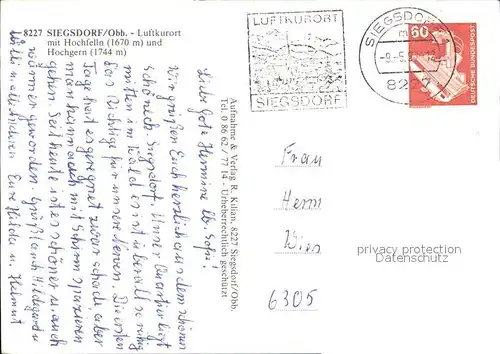 8227 SIEGSDORF/Obb. - Luftkurort
mit Hochfelln (1670 m) und
Hochgern (1744 m)
Liebe Gote Hermine
Wir grüßen Euch herzlich aus dem schönen
Siegsdorf. Unser Quartier liegt
mitten im Wald es ist überall so ruhig
das Richtige für unsere Nerven. Die ersten
Tage hat es geregnet zwar schade, aber
man kann auch mit Schirm spazieren
gehen. Seit heute ist es schöner u. auch
wärmer geworden. Grüßt auch Hildegard u.
Willi u. alle Eure Hilda u. Helmut
Aufnahme & Verlag R. Kilian, 8227 Siegsdorf/Obb.
Tel. 0 86 62 / 77 14 - Urheberrechtlich geschützt
LUFTKURORT
SIEGSDORF
SIEGSDORF
8227
60
DEUTSCHE BUNDESPOST
Frau
Herm
6305
privacy protection
Datenschutz